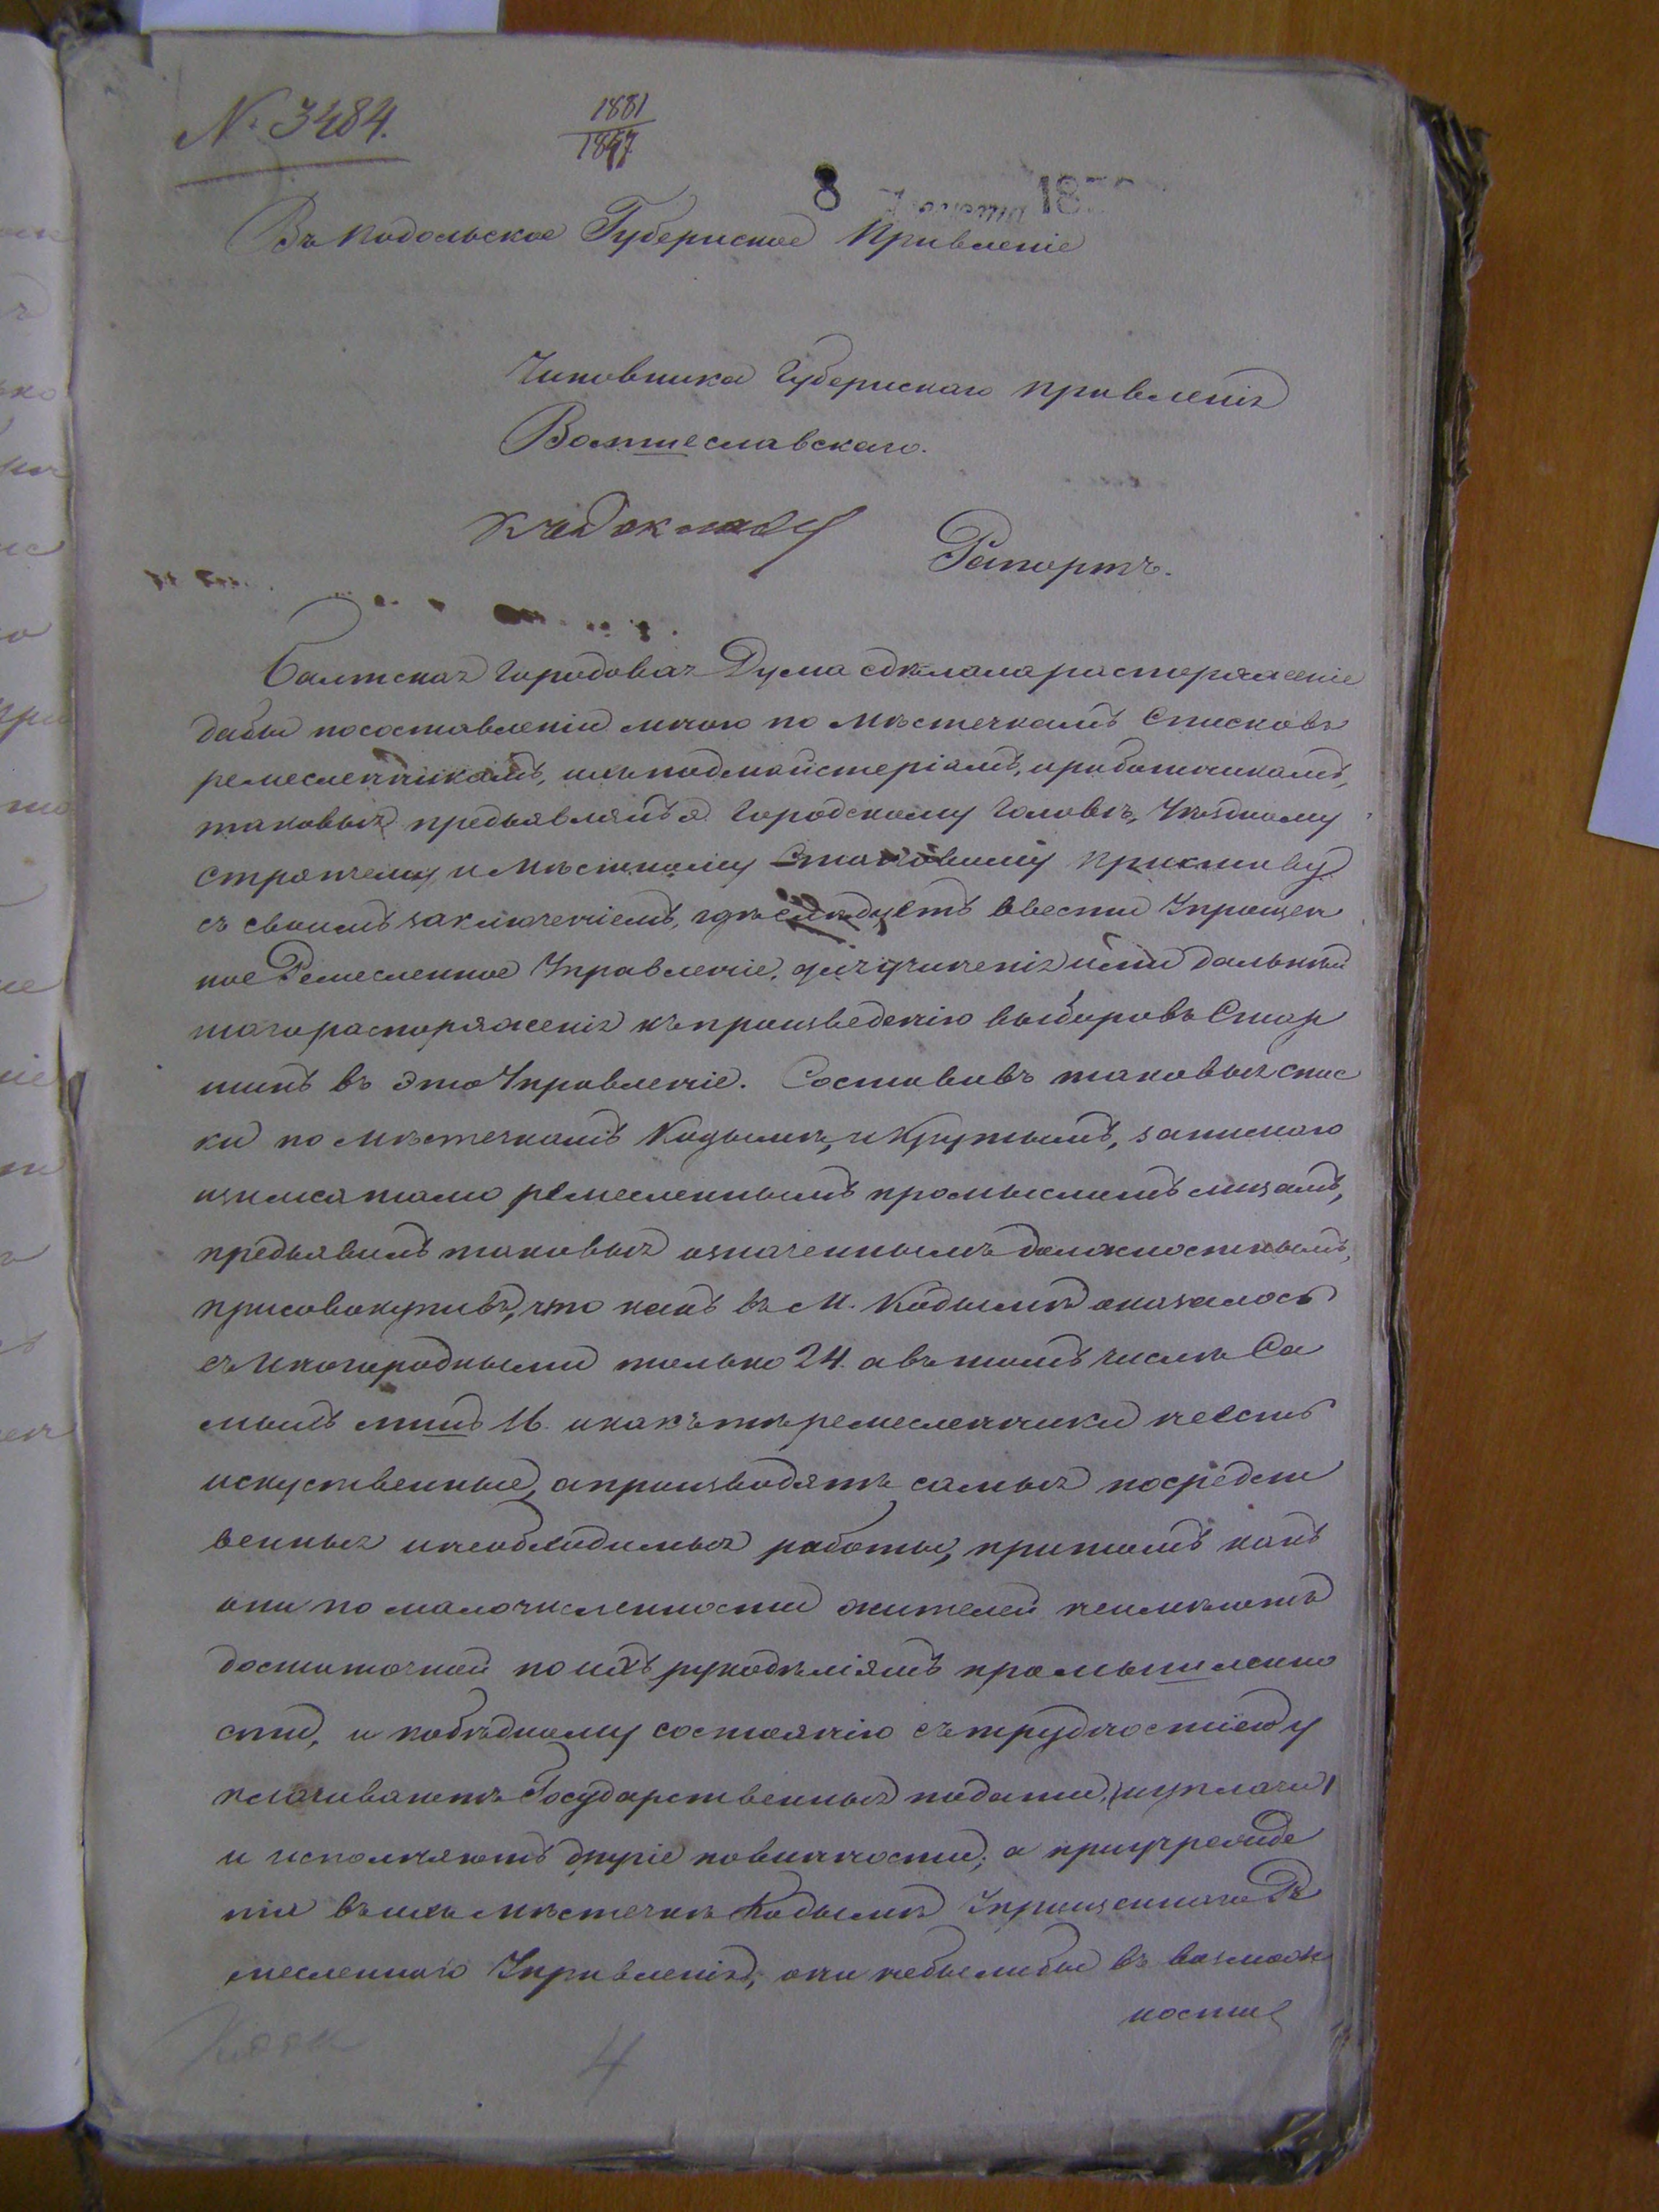 № 3484.
1881
1847
8 18
Въ Подольское Губернское Правленіе
Чиновника Губернскаго правленія
Волтшеславскаго.
Къ докладу
Рапортъ.
Балтская городовая Дума сдѣлала распоряженіе
дабы по составленіи мною по мѣстечкамъ Списковъ
ремесленникамъ, ихъ подмайстеріямъ, и работникамъ,
таковыя предъявлять я Городскому Головѣ, Уѣздному
Стряпчему и Мѣстному Становому приставу
съ своимъ заключеніемъ, гдѣ слѣдуетъ ввести Упрощен
ное Ремесленное Управленіе, для учиненія ими дальнѣй
шаго распоряженія къ произведенію выборовъ Стар
шинъ въ это Управленіе. Составивъ таковыя спис
ки по мѣстечкамъ Кодымѣ, и Крутымъ,
ремесленнымъ промысломъ лицамъ,
предъявилъ таковыя означеннымъ должностнымъ,
присовокупивъ, что какъ въ М. Кодымѣ оказалось
съ Иногородными только 24. а въ томъ числѣ Са
мыхъ 16. и какъ тѣ ремесленники не есть
искуственные, а производятъ самыя посредст
венныя и необходимыя работы, притомъ какъ
они по малочисленности жителей неимѣютъ
достаточной по ихъ рукодѣліямъ промышленно
сти, и побѣдному состоянію съ трудностію у
плачиваютъ Государственныя подати,
и исполняютъ другіе повинности; а приучрежде
ніи въ ихъ мѣстечкѣ Кодымѣ Упрощеннаго Ре
месленнаго Управленія, они небылибы въ возмож
ности
4